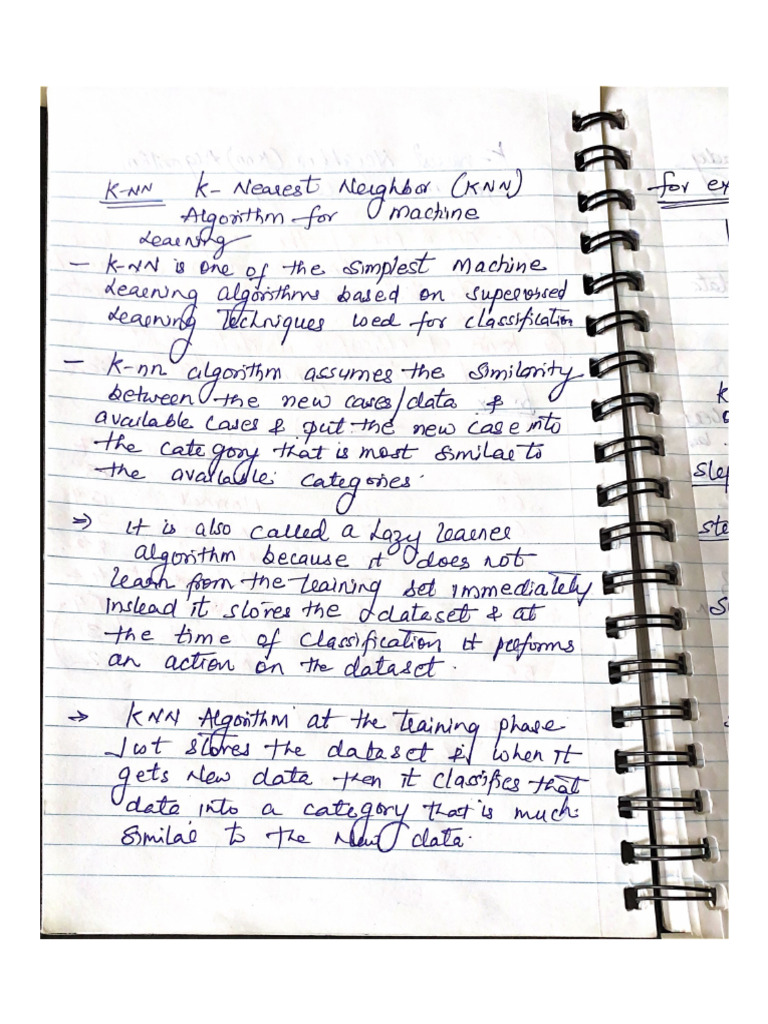 K-NN K- Nearest Neighbor (KNN)
Algorithm for machine
Learning
- K-NN is one of the simplest machine
Learning algorithms based on supervised
Learning Techniques used for classification
- K-nn algorithm assumes the similarity
between the new cases/data &
available cases & put the new case into
the category that is most similar to
the available categories.
⇒ it is also called a Lazy learner
algorithm because it does not
learn from the training set immediately
instead it stores the dataset & at
the time of classification it performs
an action on the dataset.
→ KNN Algorithm at the training phase
Just stores the dataset & when it
gets New data then it classifies that
data into a category that is much
similar to the New data.
for ex
K
step
ste